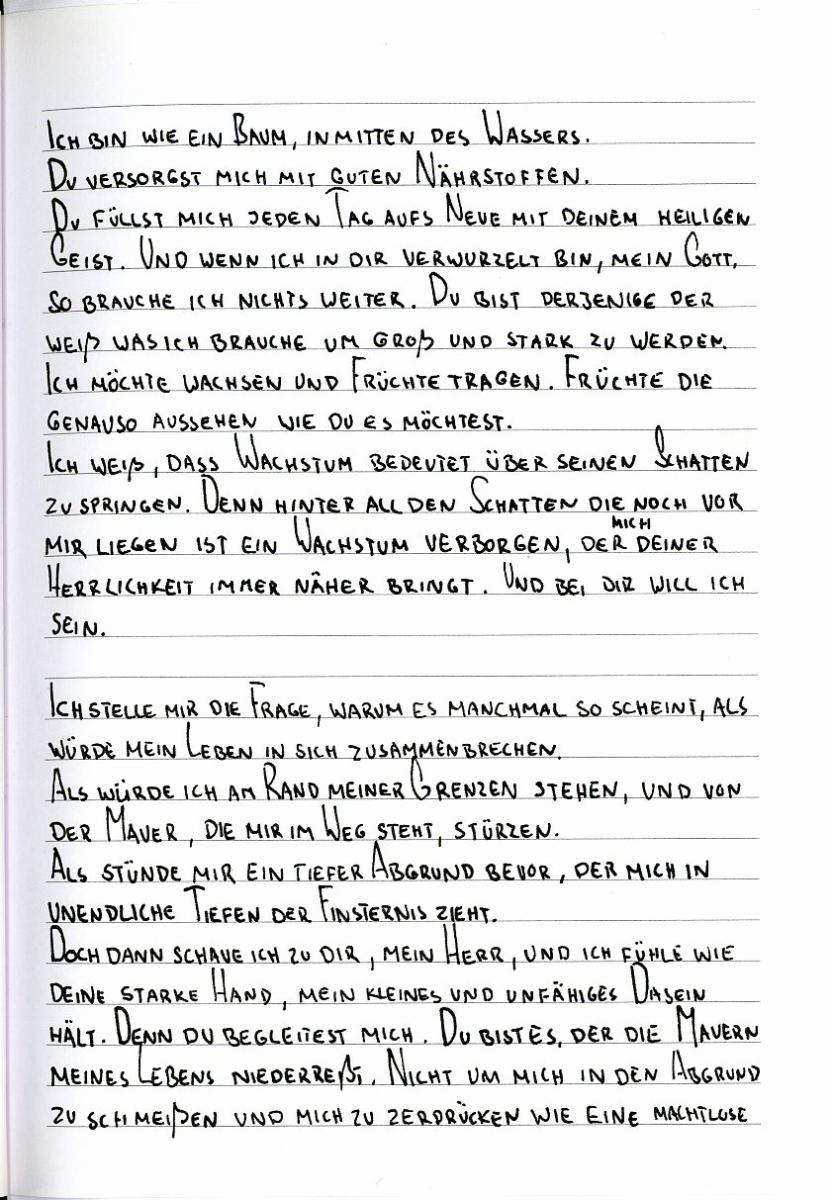 Ich bin wie ein Baum, inmitten des Wassers.
Du versorgst mich mit guten Nährstoffen.
Du füllst mich jeden Tag aufs Neue mit deinem heiligen
Geist. Und wenn ich in dir verwurzelt bin, mein Gott,
so brauche ich nichts weiter. Du bist derjenige der
weiß was ich brauche um groß und stark zu werden.
Ich möchte wachsen und Früchte tragen. Früchte die
genauso aussehen wie du es möchtest.
Ich weiß, dass Wachstum bedeutet über seinen Schatten
zu springen. Denn hinter all den Schatten die noch vor
mir liegen ist ein Wachstum verborgen, der mich deiner
Herrlichkeit immer näher bringt. Und bei dir will ich
sein.
Ich stelle mir die Frage, warum es manchmal so scheint, als
würde mein Leben in sich zusammenbrechen.
Als würde ich am Rand meiner Grenzen stehen, und von
der Mauer, die mir im Weg steht, stürzen.
Als stünde mir ein tiefer Abgrund bevor, der mich in
unendliche Tiefen der Finsternis zieht.
Doch dann schaue ich zu dir, mein Herr, und ich fühle wie
deine starke Hand, mein kleines und unfähiges Dasein
hält. Denn du begleitest mich. Du bist es, der die Mauern
meines Lebens niederreßt. Nicht um mich in den Abgrund
zu schmeißen und mich zu zerdrücken wie eine machtlose